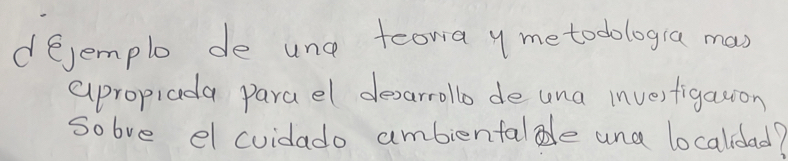 d Ejemplo de una teoria y metodologia mas
apropiada para el desarrollo de una investigacion
Sobre el cuidado ambiental de una localidad?